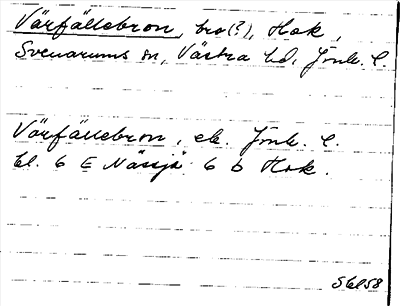 Värfällebron, bro(?), Hok,
Svenarums sn, Västra hd, Jönk. l.
Värfällebron, ek. Jönk. l.
bl. 6 E Nässjö 6 b Hok.